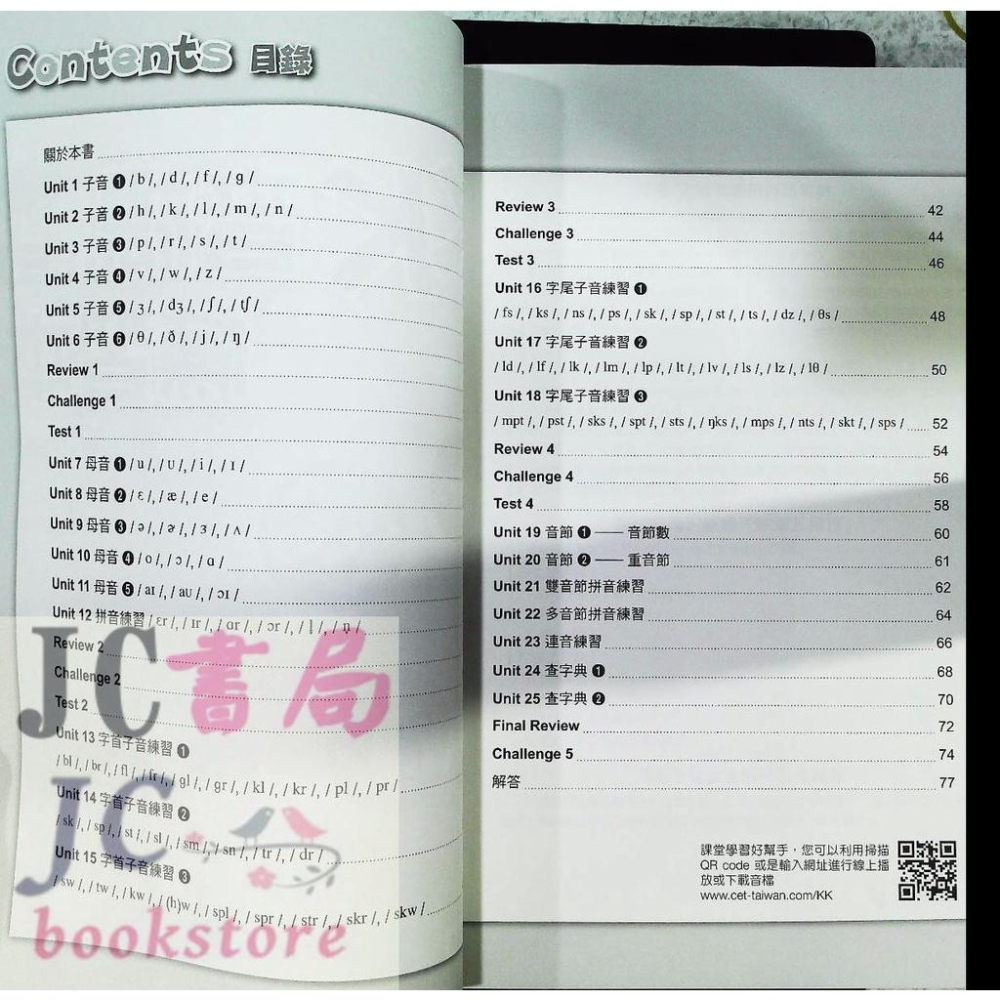 Contents 目錄
關於本書
Unit 1 子音 ❶ / b /, / d /, / f /, / g /
Unit 2 子音 ❷ / h /, / k /, / l /, / m /, / n /
Unit 3 子音 ❸ / p /, / r /, / s /, / t /
Unit 4 子音 ❹ / v /, / w /, / z /
Unit 5 子音 ❺ / ʒ /, / dʒ /, / ʃ /, / tʃ /
Unit 6 子音 ❻ / θ /, / ð /, / j /, / ŋ /
Review 1
Challenge 1
Test 1
Unit 7 母音 ❶ / u /, / ʊ /, / i /, / ɪ /
Unit 8 母音 ❷ / ɛ /, / æ /, / e /
Unit 9 母音 ❸ / ə /, / ɚ /, / ɜ /, / ʌ /
Unit 10 母音 ❹ / o /, / ɔ /, / ɑ /
Unit 11 母音 ❺ / aɪ /, / aʊ /, / ɔɪ /
Unit 12 拼音練習 / ɛr /, / ɪr /, / ɑr /, / ɔr /, / l̩ /, / n̩ /
Review 2
Challenge 2
Test 2
Unit 13 字首子音練習 ❶
/ bl /, / br /, / fl /, / fr /, / gl /, / gr /, / kl /, / kr /, / pl /, / pr /
Unit 14 字首子音練習 ❷
/ sk /, / sp /, / st /, / sl /, / sm /, / sn /, / tr /, / dr /
Unit 15 字首子音練習 ❸
/ sw /, / tw /, / kw /, / (h)w /, / spl /, / spr /, / str /, / skr /, / skw /
JC書局
JC
bookstore
Review 3 42
Challenge 3 44
Test 3 46
Unit 16 字尾子音練習 ❶
/ fs /, / ks /, / ns /, / ps /, / sk /, / sp /, / st /, / ts /, / dz /, / θs / 48
Unit 17 字尾子音練習 ❷
/ ld /, / lf /, / lk /, / lm /, / lp /, / lt /, / lv /, / ls /, / lz /, / lθ / 50
Unit 18 字尾子音練習 ❸
/ mpt /, / pst /, / sks /, / spt /, / sts /, / ŋks /, / mps /, / nts /, / skt /, / sps / 52
Review 4 54
Challenge 4 56
Test 4 58
Unit 19 音節 ❶ —— 音節數 60
Unit 20 音節 ❷ —— 重音節 61
Unit 21 雙音節拼音練習 62
Unit 22 多音節拼音練習 64
Unit 23 連音練習 66
Unit 24 查字典 ❶ 68
Unit 25 查字典 ❷ 70
Final Review 72
Challenge 5 74
解答 77
課堂學習好幫手，您可以利用掃描
QR code 或是輸入網址進行線上播
放或下載音檔
www.cet-taiwan.com/KK